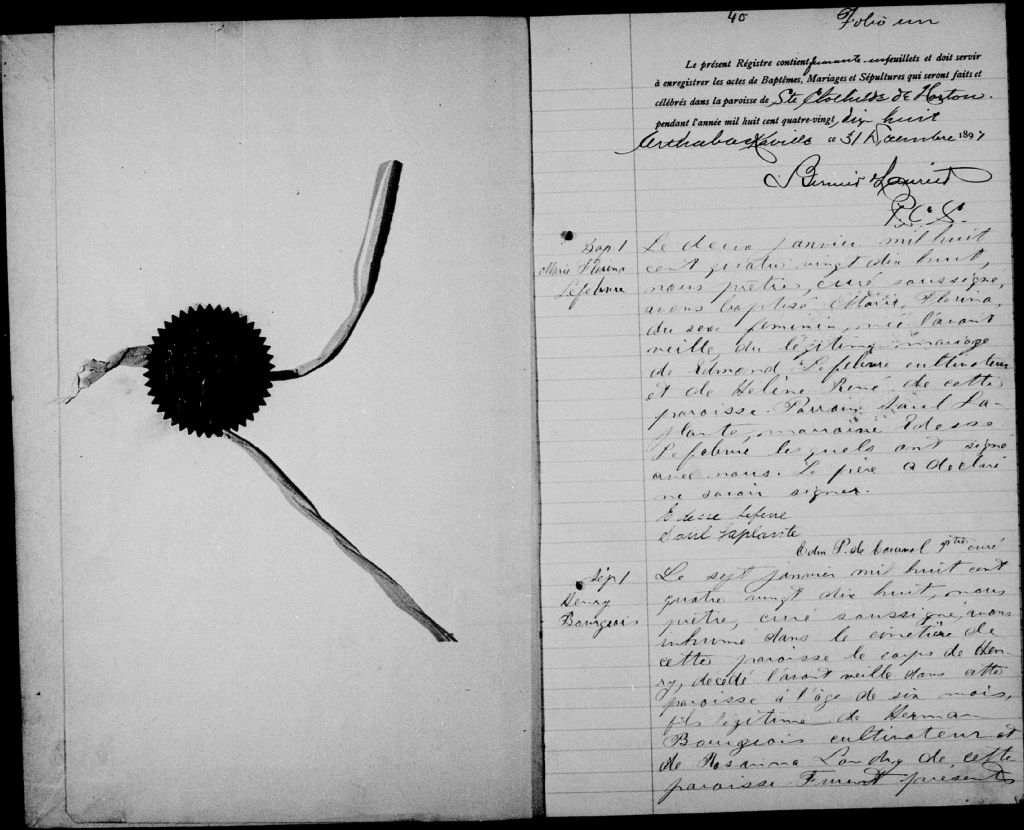 40
Folio un
Le présent Régistre contient feuillets et doit servir
à enregistrer les actes de Baptêmes, Mariages et Sépultures qui seront faits et
célébrés dans la paroisse de Ste Clothilde de Horton.
pendant l'année mil huit cent quatre-vingt, dix huit
Arthabaskaville ce 31 Décembre 1897
Laurier
P. C. S.
Bap 1
Marie Florina
Lefebvre
Le deux janvier mil huit
cent quatre vingt dix huit,
nous prêtre, curé soussigné,
avons baptisé Marie, Florina,
du sexe feminin, née l'avant
veille, du légitime mariage
de Edmond Lefebvre cultivateur
et de Hélène René de cette
paroisse. Parrain Saul La-
plante, marraine Edesse
Lefebvre lesquels ont signé
avec nous. Le père a déclaré
ne savoir signer.
Edesse Lefevre
Saul Laplante
Edm P. de ptre curé
Sép 1
Henry
Bourgeois
Le sept janvier mil huit cent
quatre vingt dix huit, nous
prêtre, curé soussigné, avons
inhumé dans le cimetière de
cette paroisse le corps de Hen-
ry, decédé l'avant veille dans cette
paroisse à l'âge de six mois,
fils légitime de Herman
Bourgeois cultivateur et
de Rosanna Landry de cette
paroisse. Furent présents